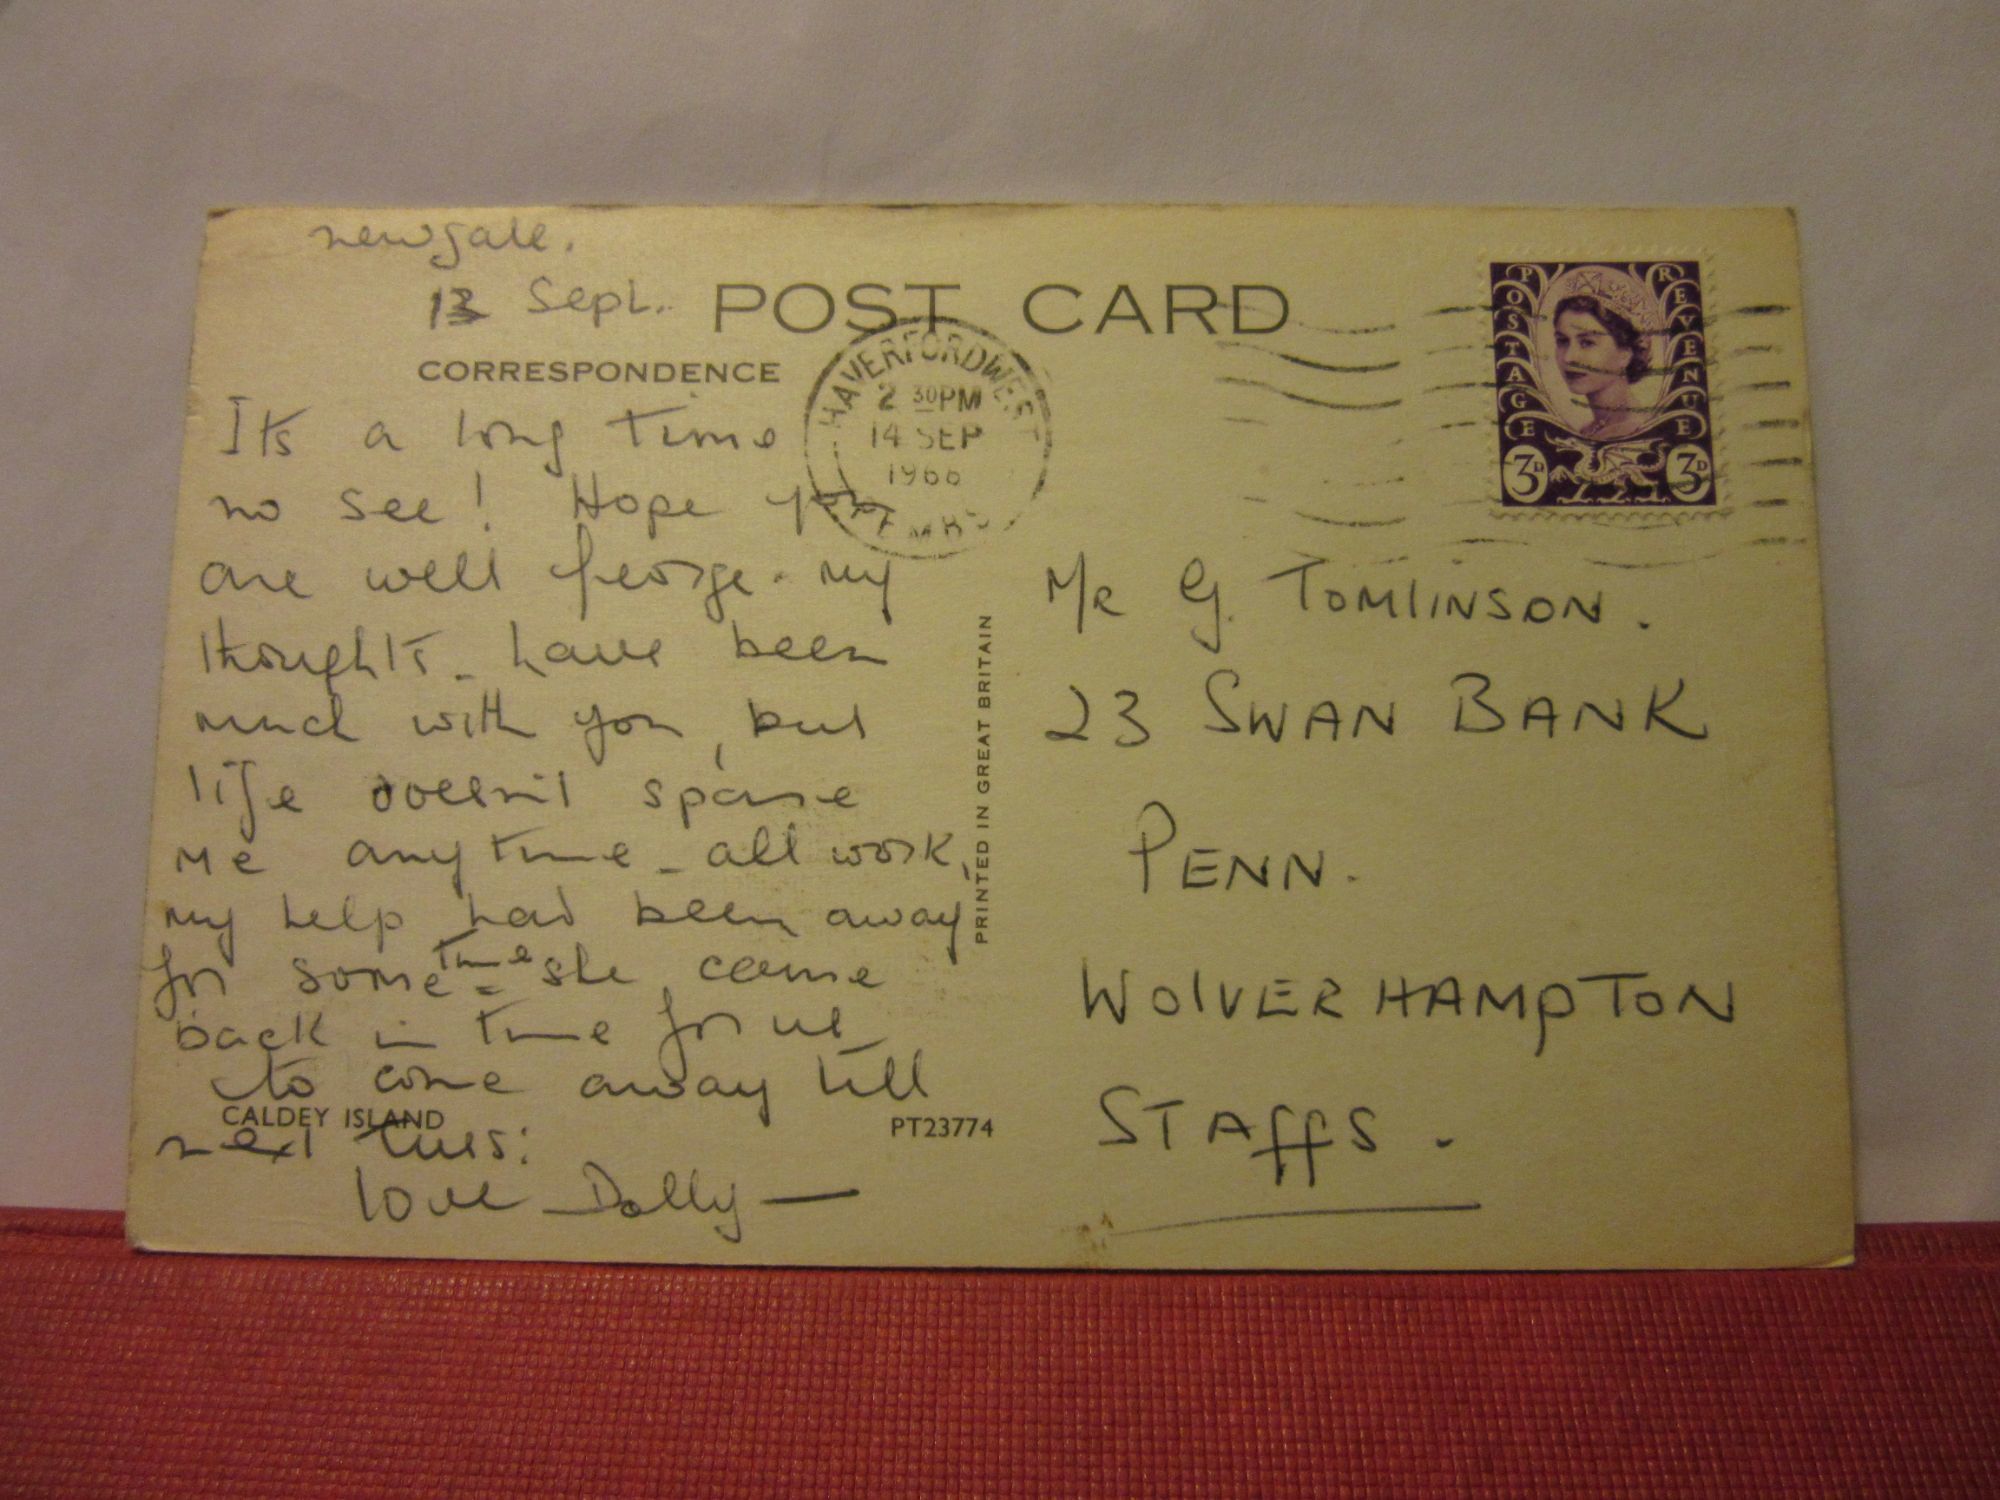 newgale.
13 Sept.
POST CARD
CORRESPONDENCE
Its a long time
no see! Hope you
are well George. my
thoughts have been
much with you, but
life doesn't spare
me any time - all work,
my help had been away
for some time - she came
back in time for us
to come away till
next tues:
love Dolly —
CALDEY ISLAND
PT23774
PRINTED IN GREAT BRITAIN
HAVERFORDWEST
2 30PM
14 SEP
1966
PEMBS
POSTAGE
REVENUE
3D
3D
Mr G. TOMLINSON.
23 SWAN BANK
PENN.
WOLVERHAMPTON
STAFFS.